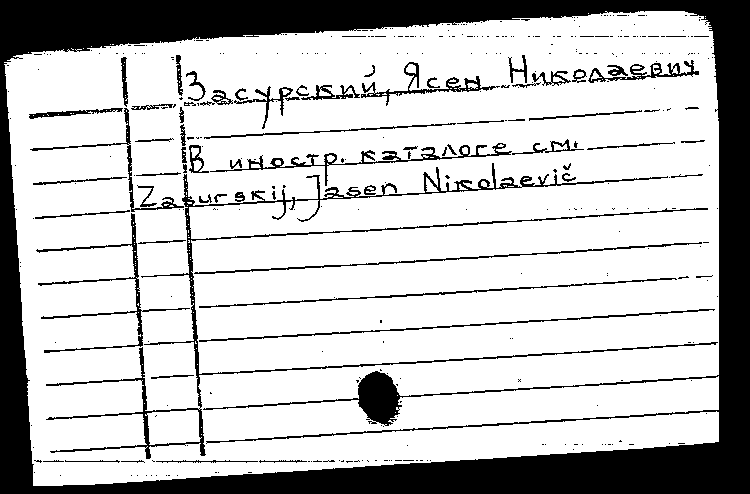 Засурский, Ясен Николаевич
В иностр. каталоге см.
Zasurskij, Jasen Nikolaevič